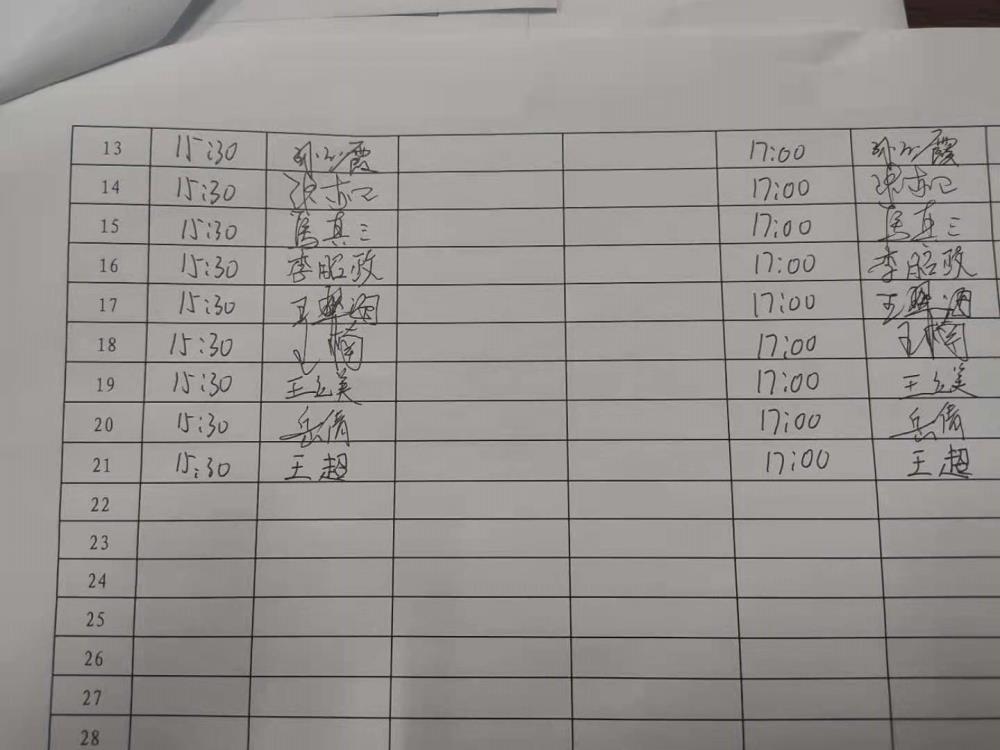 13 15:30 17:00
14 15:30 17:00
15 15:30 馬真三 17:00 馬真三
16 15:30 李昭政 17:00 李昭政
17 15:30 王 17:00 王
18 15:30 王楠 17:00 王楠
19 15:30 王立美 17:00 王立美
20 15:30 岳倩 17:00 岳倩
21 15:30 王超 17:00 王超
22
23
24
25
26
27
28